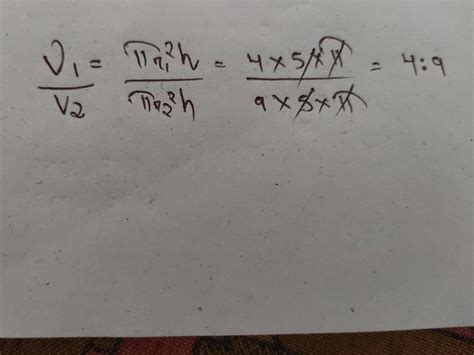 V₁/V₂ = πr₁²h/πr₂²h = 4×5×π/9×5×π = 4:9